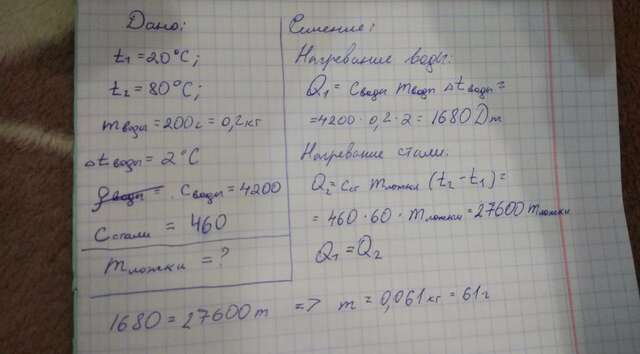 Дано:
t₁ = 20°C;
t₂ = 80°C;
mводы = 200г = 0,2кг
Δtводы = 2°C
Cводы = 4200
Cстали = 460
mложки = ?
Решение:
Нагревание воды:
Q₁ = Cводы mводы Δtводы =
= 4200 · 0,2 · 2 = 1680 Дж
Нагревание стали:
Q₂ = Cст mложки (t₂ - t₁) =
= 460 · 60 · mложки = 27600 mложки
Q₁ = Q₂
1680 = 27600 m => m = 0,061 кг = 61 г